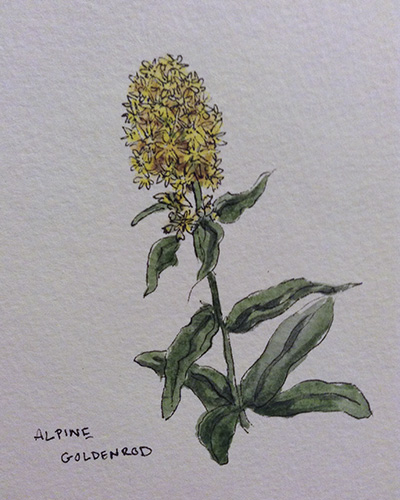 ALPINE
GOLDENROD